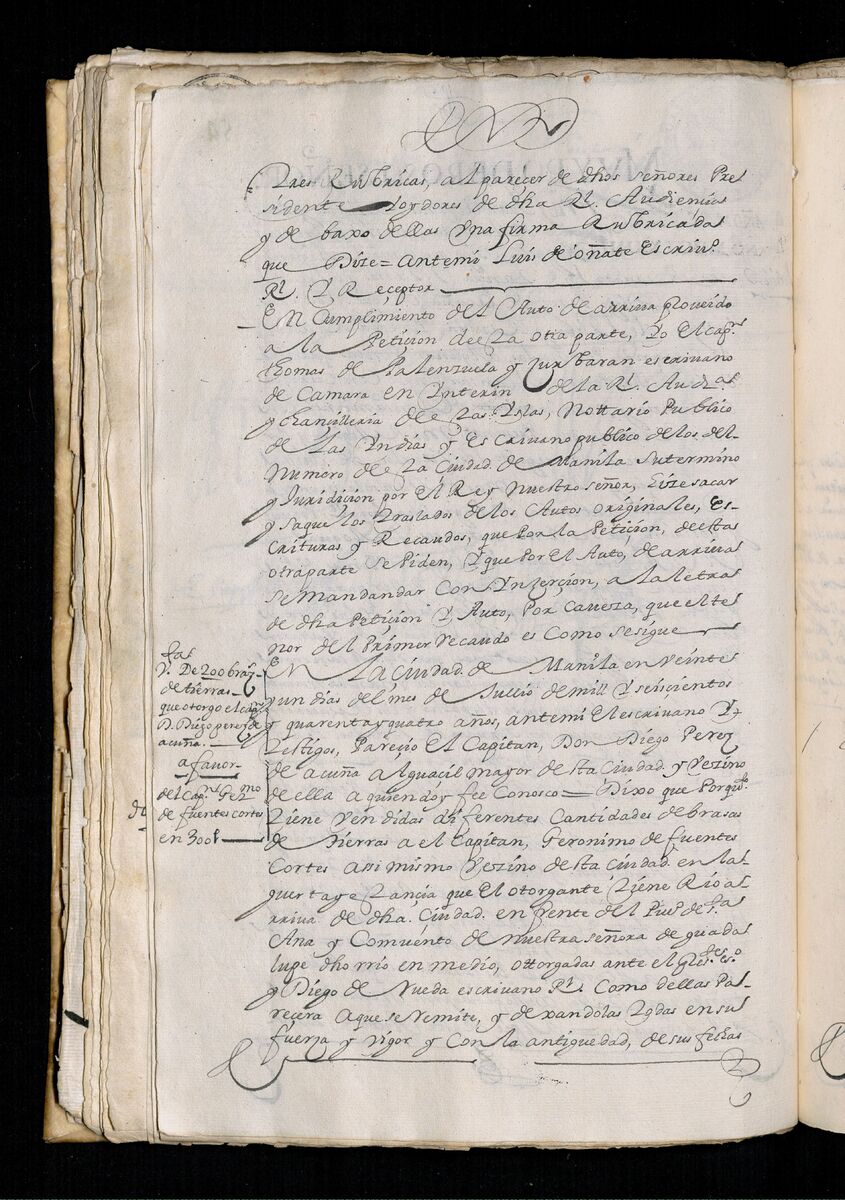 tres Rubricas, al parecer de dhos señores Pre
sidente y oydores de dha Rl. Audiencia
y de baxo dellas una firma Rubricada
que Dize = antemi Luis de oñate Escriuo.
Rl. Y Receptor
En Cumplimiento del Auto de arriua proueido
a la Peticion de la otra parte, Yo El capn.
thomas de Palenzuela y Zurbaran escriuano
de Camara en Ynterin de la Rl. Audia.
y chancilleria de estas Yslas, Nottario Publico
de Las Yndias y Escriuano publico de los del
Numero de la Ciudad de Manila su termino
y Juridicion por El Rey Nuestro señor, hize sacar
y saque los traslados de los Autos originales, Es
crituras y Recaudos, que Por la Peticion, de esta
otra parte Se Piden, Y que Por El Auto, de arriua
se Mandan dar Con Ynserçion, a la letra
de dha Peticion Y Auto, Por Caueza, que el te
nor del Primer recaudo es Como se sigue
En La ciudad de Manila en veinte
y un dias del mes de Jullio de mill Y seiscientos
y quarenta y quatro años, antemi El escriuano Y
testigos, Pareçio El Capitan, Don Diego Perez
de acuña Alguacil mayor desta Ciudad Y Vezino
de ella a quien doy fee Conosco = Dixo que Por quto.
tiene Vendidas diferentes Cantidades de brasas
de tierras a el Capitan, Geronimo de fuentes
Cortes assimismo Vezino desta Ciudad en la
guerta y estançia que El otorgante tiene Rio a
rriua de dha. Ciudad en frente del Pueo. de sta
Ana y Comuento de nuestra señora de guada
lupe dho rrio en medio, ottorgadas ante el
y Diego de Rueda escriuano Rl. Como dellas Pa
recera a que se remite, y dexandolas todas en su
fuerza y vigor y Con la antiguedad, de sus fechas
Va. De 200 brazs.
de tierras
que otorgo el capn.
D. Diego perez de
acuña
a fauor
del Capn. Germo.
de fuentes cortes
en 300 ps